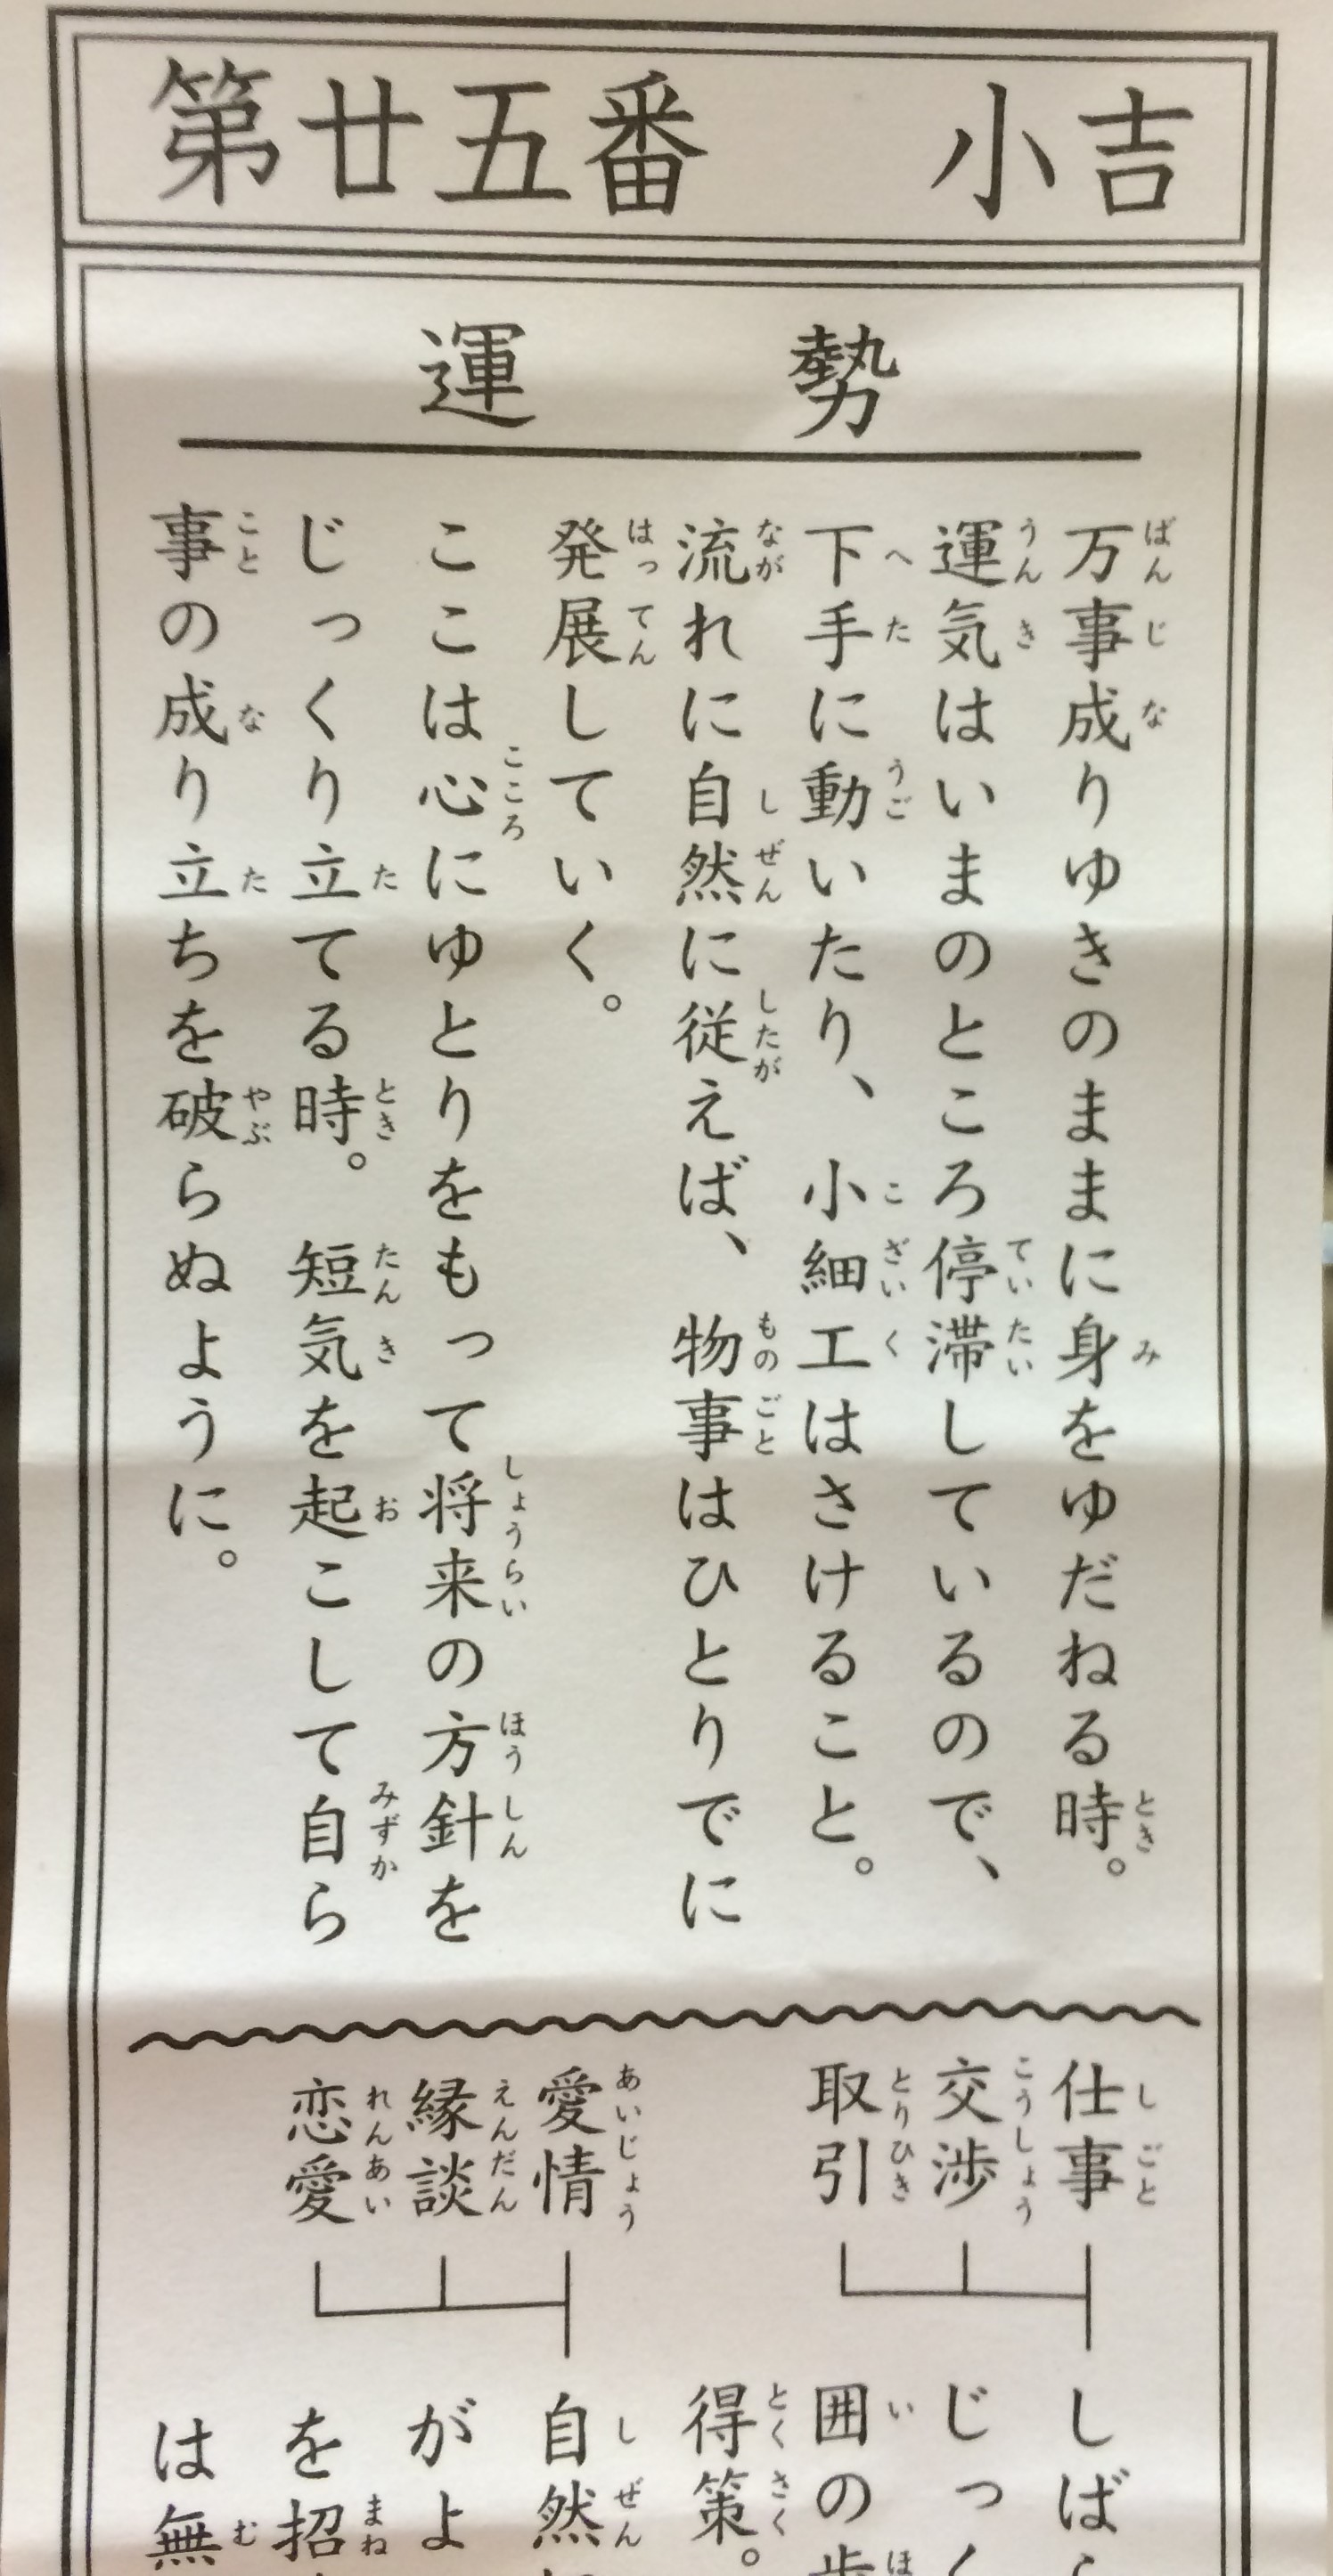 第廿五番　小吉
運勢
万事成りゆきのままに身をゆだねる時。
運気はいまのところ停滞しているので、
下手に動いたり、小細工はさけること。
流れに自然に従えば、物事はひとりでに
発展していく。
ここは心にゆとりをもって将来の方針を
じっくり立てる時。短気を起こして自ら
事の成り立ちを破らぬように。
仕事
交渉
取引
しばら
じっく
囲の歩
得策。
愛情
縁談
恋愛
自然
がよ
を招
は無